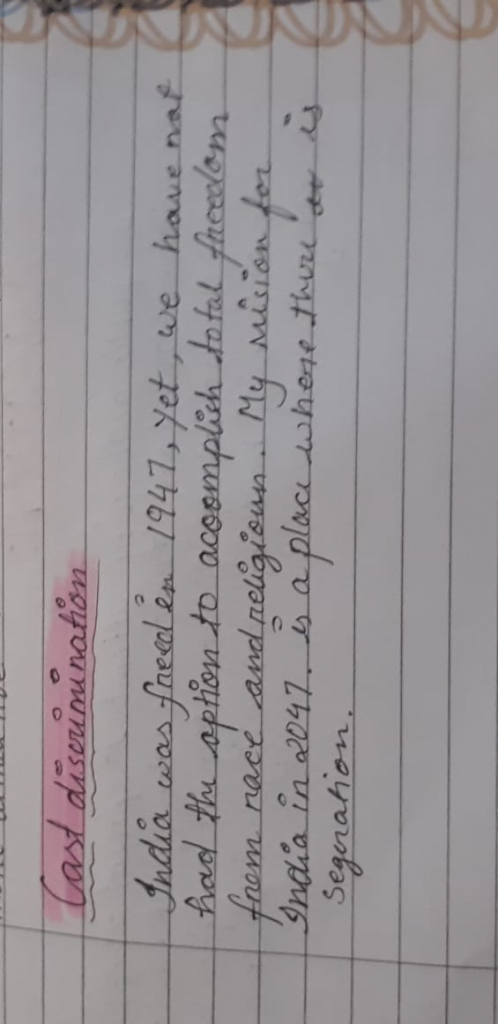 Cast discrimination
India was freed in 1947, yet, we have not
had the option to accomplish total freedom
from race and religioun. My mision for
India in 2047. is a place where there is
segration.